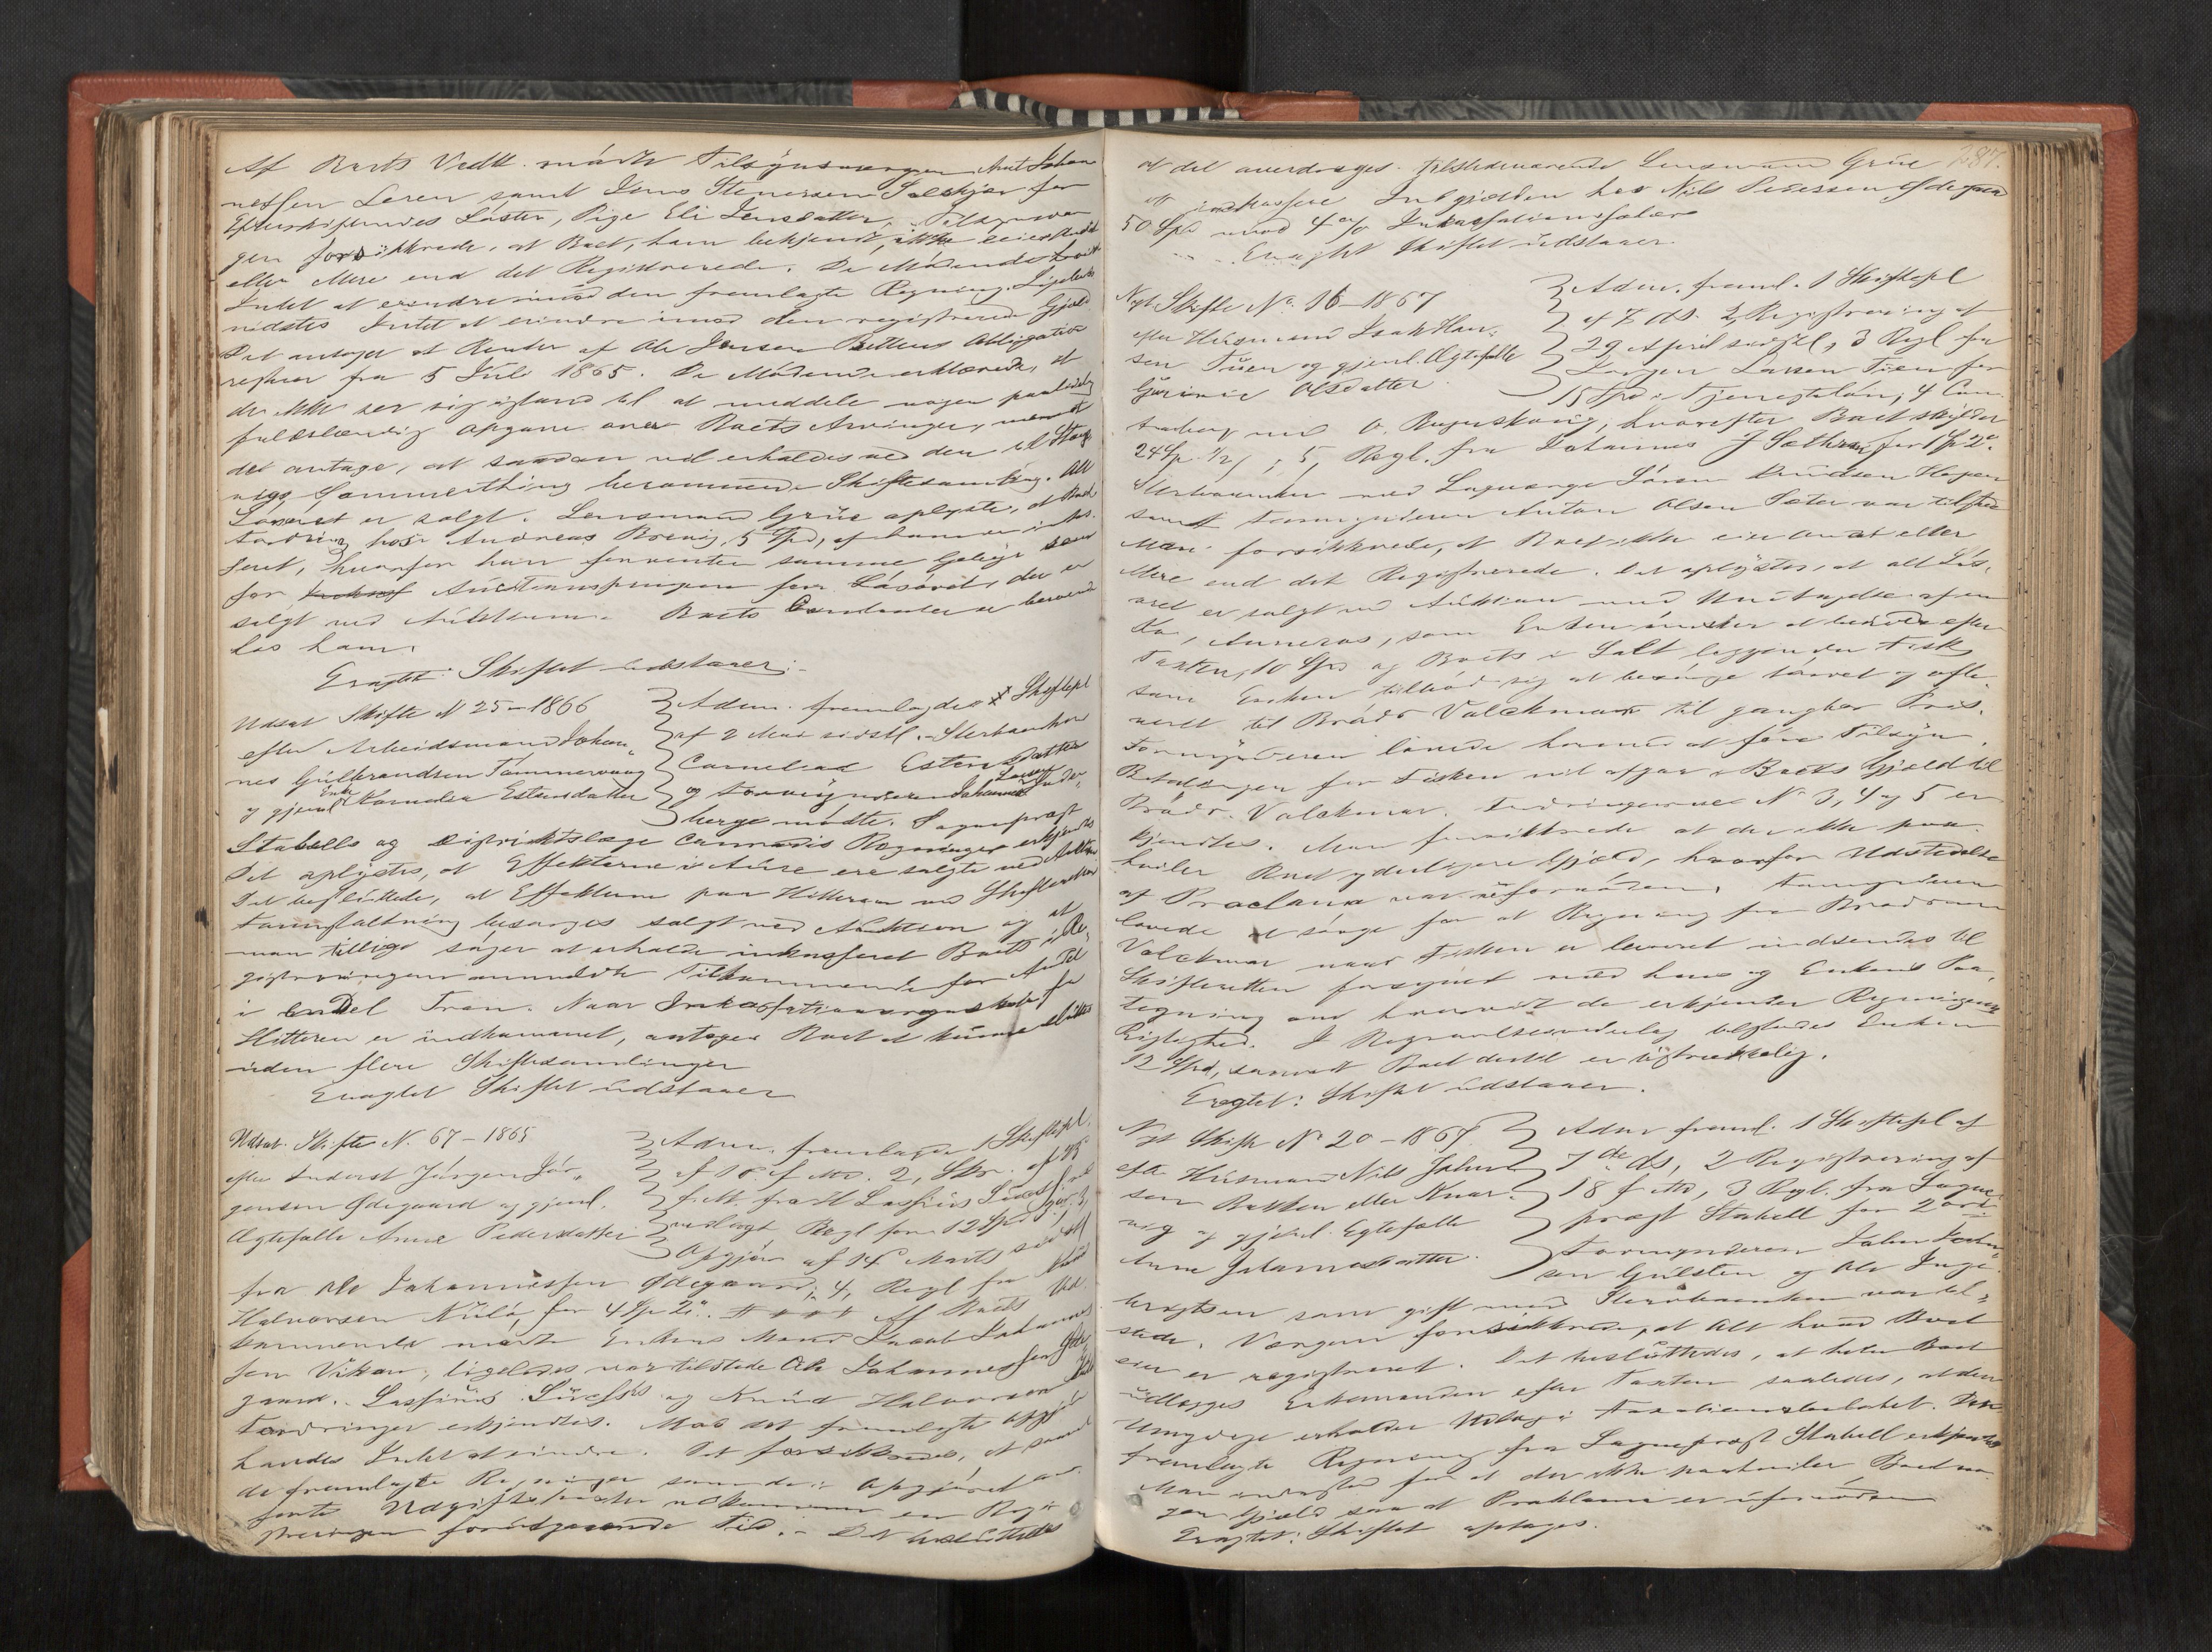 Af Boets Vedk. mödte Tilsynsværgen Knut Johan
nessen Leren samt Jens Stenersen Solskjær for
Efterskifterindes Söster, Pige Eli Jensdatter. Tilsynsvær
gen forsikkrede, at Boet, ham bekjendt, ikke eier Andet
eller Mere end det Registrerede. De Mödende havde
Intet at erindre imod den fremlagte Regning. Ligeledes
Intet at erindre imod den registrerede Gjæld
Det antoges at Renter af Ole Jensen Obligation
resterer fra 5 Juli 1865. De Mödende erklærede, at
de ikke ser sig istand til at meddele nogen paalidelig
fuldstændig Opgave over Boets Arvinger, men
det antages, at saadan vil erholdes ved den til
Sommerthing berammede Skiftesamling. Alt
Lösöret er solgt. Lensmand Grüe oplyste, at Boets
Fordring hos Andreas 5 Spd, af ham er inkas
seret, hvorfor han forventer samme Gebyr som
for Auctionspengene for Lösöret, der er
solgt ved Auktion. Boets Contanter er beroende
hos ham.
Eragtet: Skiftet udstaaer.
Udsat Skifte N 25 - 1866
efter Arbeidsmand Johan
nes Gulbrandsen Tömmervaag
og gjenl. Enke Karnelia Estensdatter
Adm. fremlagde Skiftepl
af 2 Mai sidstl. - Sterboenken
Cornelia Estensdatter
og Formynderen Johannes Larsen
berge mödte. Sogneprest
Stabells og Distriktslæge Conradis Regninger erkjendtes
Det oplystes, at Effekterne i Aure ere solgte ved Auktion
Det besluttedes, at Effekterne paa Hitteren ved Skifterettens
Foranstaltning besörges solgt ved Auktion og at
man tillige söger at erholde inkasseret Boets i Re-
gistreringen anmeldte Tilkommende for Andel
i en Del Tran. Naar Inkassationsregnskabet fra
Hitteren er indkommet, antoges Boet at kunne sluttes
uden flere Skiftesamlinger
Eragtet Skiftet udstaaer
Udsat. Skifte N. 67 - 1865
efter Inderst Jörgen Jör-
gensen Ödegaard og gjenl.
Ægtefælle Anne Pedersdatter
Adm. fremlagde 1 Skiftepl.
af 18 f. Md. 2, Skr. af 29
f. M. fra H Lossius
vedlagt Regl for 12 Spd 3,
Opgjör af 14 Marts sidstl
fra Ole Johannessen Ödegaard; 4, Regl fra Knud
Halvorsen for 4 Sp 2 . Af Boets Ved
kommende mödte Enkens Mand Jacob Johannes
sen Viken; ligeledes var tilstede Ole Johannessen Öde
gaard. Lossius og Knud Halvorsen
Fordringer erkjendtes. Mod det fremlagte Opgjör
havdes Intet at erindre. Det forsikkredes, at saavel
de fremlagte Regninger som de i Opgjöret an
förte Udgiftsposter vedkommer en Regi
streringen forudgaaende Tid. - Det besluttedes
287.
at det overdroges tilstedeværende Lensmand Grüe
at inkassere Indgjælden hos Nils Pedersen Ödegaard
50 Spd mod 4% Inkassationssalær
Eragtet Skiftet udstaaer.
Nyt Skifte No 16 - 1867
efter Husmand Isak Han-
sen Tüen og gjenl. Ægtefælle
Gurine Olsdatter
Adm. freml. 1 Skiftepl
af 7 ds. 2, Registrering af
29 April sidstl, 3 Regl fra
Jörgen Larsen Tüen for
15 Spd i Tjenestelön, 4 Con
trabog med hvorefter Boet skylder
24 Sp ; 5, Regl. fra Johannes J for 1 Sp 2.
Sterboenken med Laugværge Sören Knudsen
samt Formynderen Anton Olsen Sæter var tilstede
Man forsikkrede, at Boet ikke eier Andet eller
Mere end det Registrerede. Det oplystes, at alt Lös-
öret er solgt ved Auktion med Undtagelse af en
Ko, , som Enken önsker at beholde efter
Taxten, 10 Spd og Boets i Salt liggende Fisk
som Enken tilböd sig at besörge törret og afle
veret til Brödr Volckmar til gangbar Pris.
Formynderen lovede hermed at före Tilsyn.
Betalingen for Fisken vil afgaa i Boets Gjæld til
Brödr. Volckmar. Fordringerne No 3, 4 og 5 er
kjendtes. Man forsikkrede at der ikke paa
hviler Boet yderligere Gjæld, hvorfor Udstedelse
af Proclama var ufornöden. Formynderen
lovede at sörge for at Regning fra Brödrene
Volckmar naar Fisken er leveret indsendes til
Skifteretten forsynet med hans og Enkens Paa-
tegning om hvorvidt de erkjender Regningens
Rigtighed. I Begravelsesomkostning tilstodes Enken
12 Spd, saavidt Boet dertil er tilstrækkelig.
Eragtet: Skiftet udstaaer.
Nyt Skifte No 20 - 1867.
efter Husmand Nils Johan
sen Bakken eller Knar-
vig og gjenl. Egtefælle
Anne Johannesdatter.
Adm freml. 1 Skiftepl af
7de ds, 2 Registrering af
18 f. Md, 3 Regl. fra Sogne
prest Stabell for 2 ort
Formynderen Johan Johan
sen Gulsten og Ole Inge
brigtsen som gift med Sterboenken var til-
stede. Værgen forsikkrede, at Alt hvad Boet
eier er registreret. Det besluttedes, at hele Boet
udlægges Enkemanden efter Taxten saaledes, at den
Umyndige erholder Udlæg i Taxationsbelöbet. Den
fremlagte Regning fra Sogneprest Stabell erkjendtes
Man indestod for at der ikke paahviler Boet no
gen Gjæld saa at Proklama er ufornöden
Eragtet: Skiftet optages.